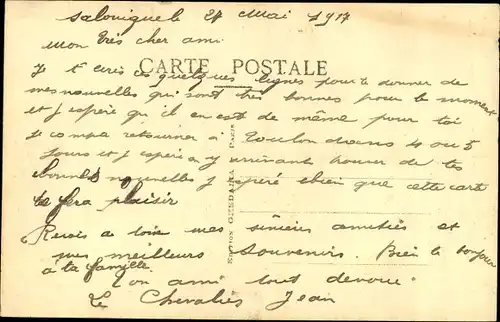 Salonique le 27 Mai 1917
Mon très cher ami
CARTE POSTALE
Je t ecris ces quelques lignes pour te donner de
mes nouvelles qui sont très bonnes pour le moment
et j espère qu il en est de même pour toi
je compte retourner a Toulon dans 4 ou 5
jours et j espère en y arrivant trouver de tes
bonnes nouvelles j espére bien que cette carte
te fera plaisir
Recois de loin mes sincères amitiés et
mes meilleurs souvenirs. Bien le bonjour
a ta famille
Ton ami tout devoué
Le Chevalier Jean
EDITION GREDARA PARIS